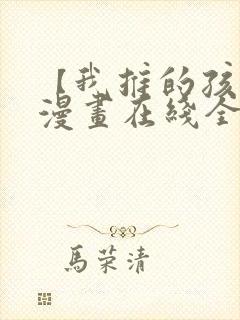 【我推的孩
漫畫在綫全
馬荣清